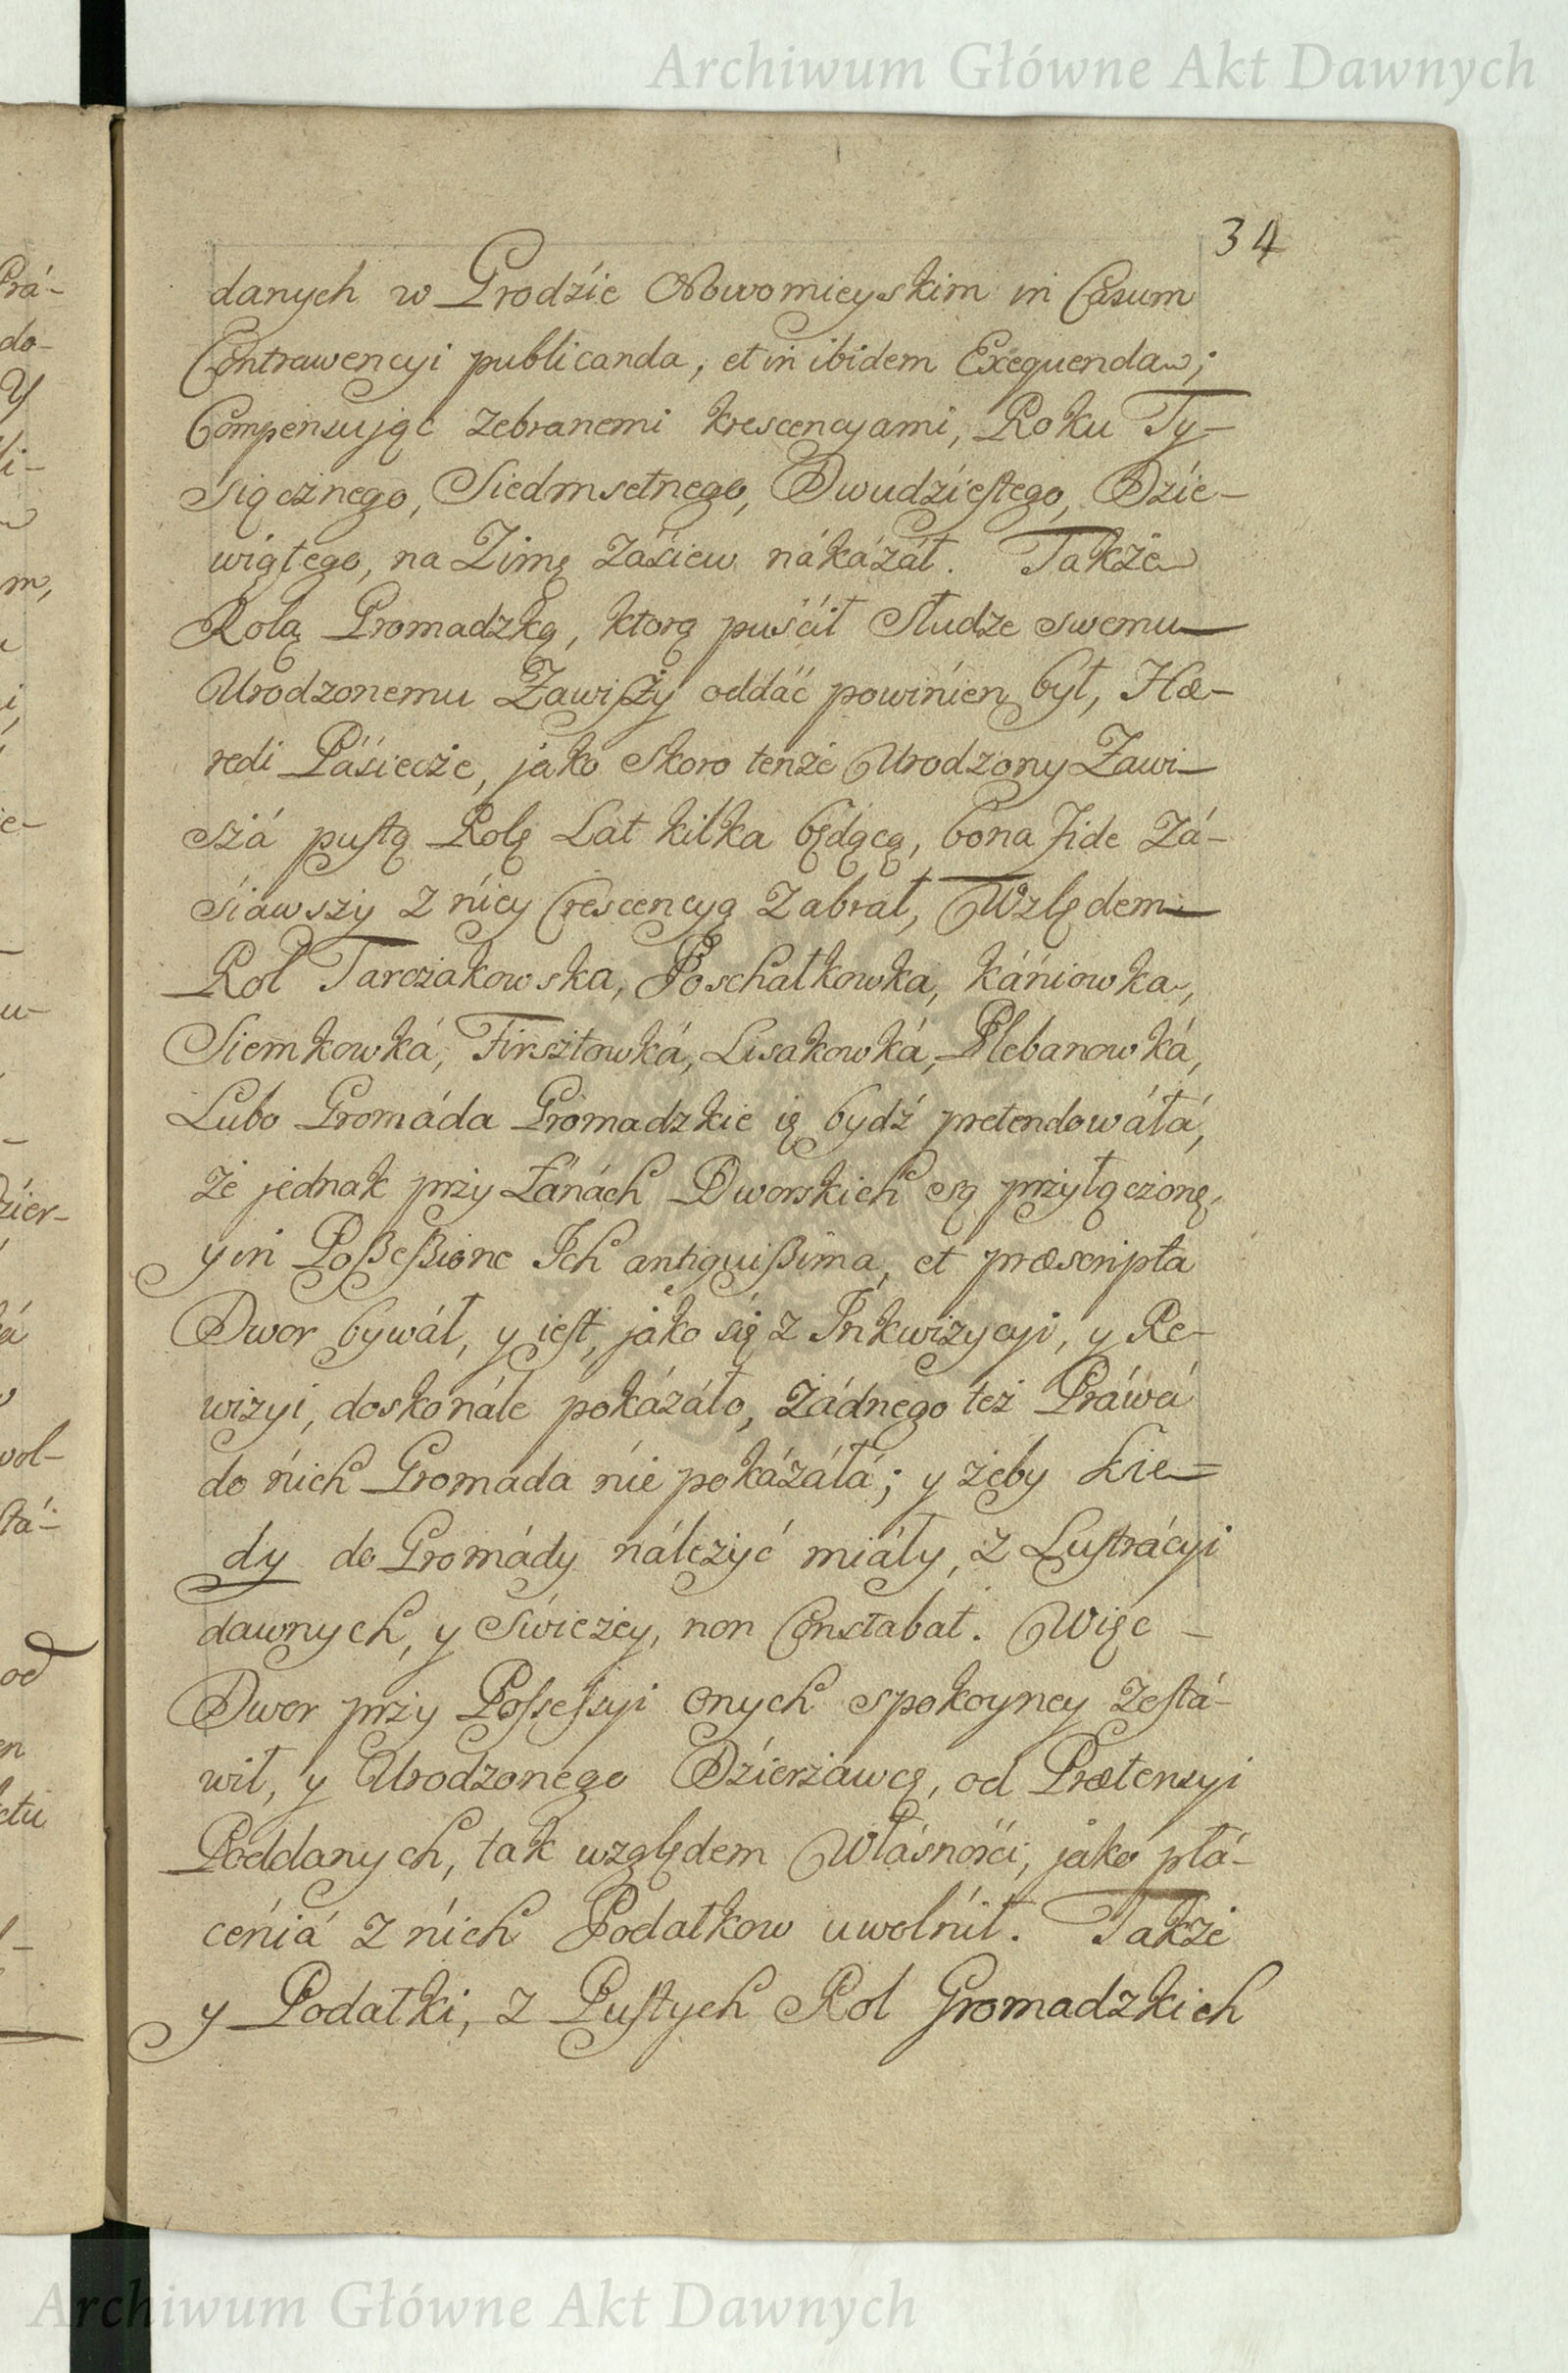 Archiwum Główne Akt Dawnych
34
danych w Grodźie Nowomieyskim in Casum
Contrawencyi publicanda, et in ibidem Exequenda;
Compensując zebranemi krescencyami, Roku Ty-
siącznego, Siedmsetnego, Dwudźiestego, Dźie-
wiątego, na Zimę záśiew nákázáł. Także
Rolą Gromadzką, ktorą puśćił Słudze swemu
Urodzonemu Zawiszy oddáć powinien był, Hæ-
redi Páśiecze, jako skoro tenże Urodzony Zawi-
szá pustą Rolę Lat kilka będącą, bona fide Zá-
śiawszy z niey Crescencyą Zabrał, Względem
Rol Tarczakowska, Poschałkowka, káńiowka,
Siemkowká, Firsztowká, Lisakowká, Plebanowká,
Lubo Gromáda Gromadzkie ię bydź pretendowáłá,
że jednak przy Łánách Dworskich są przyłączone,
y in Poßeßione Ich antiquißima, et præscripta
Dwor bywáł, y iest, jáko się z Inkwizycyi, y Re-
wizyi, doskonále pokázáło, Żádnego też Práwá
do nich Gromada nie pokázáłá; y żeby kie=
dy do Gromády náleżyć miáły, z Lustrácyi
dawnych, y Swieżey, non Constabat. Więc -
Dwor przy Possessyi onych spokoyney zestá-
wił, y Urodzonego Dźierżawcę, od Prætensyi
Poddanych, tak względem Włásnośći, jako płá-
ceniá z nich Podatkow uwolnił. Także
y Podatki, z Pustych Rol Gromadzkich
Archiwum Główne Akt Dawnych